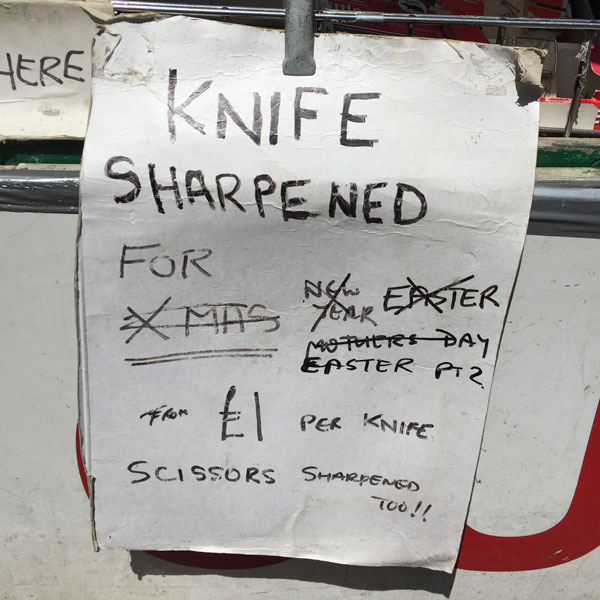 HERE
KNIFE
SHARPENED
FOR
XMAS
NEW YEAR
EASTER
MOTHERS DAY
EASTER PT 2
FROM £1 PER KNIFE
SCISSORS SHARPENED
TOO!!